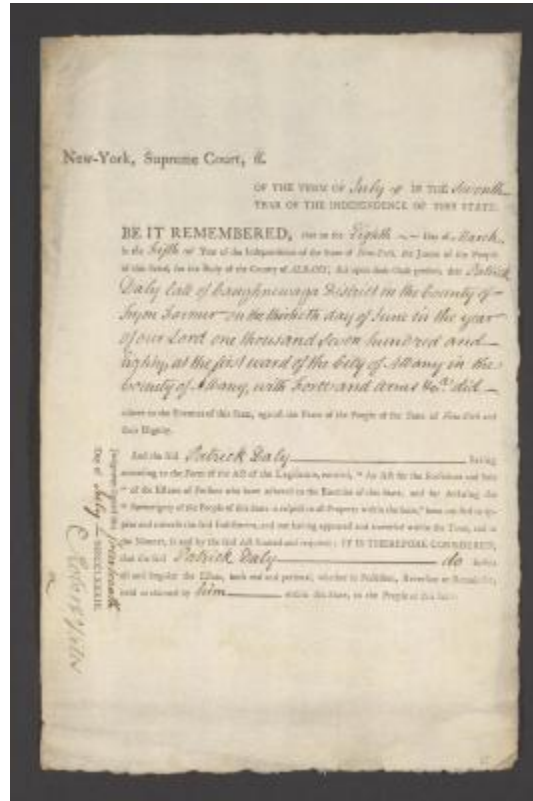 New-York, Supreme Court, &c.
OF THE TERM OF July IN THE Seventh
YEAR OF THE INDEPENDENCE OF THIS STATE.
BE IT REMEMBERED, that on the Eighth Day of March
in the Fifth Year of the Independence of the State of New-York, the Jurors of the People
of this State, for the Body of the County of ALBANY, did upon their Oath present, that Patrick
Daly late of Caughnewaga District in the County of
Tryon Farmer on the thirtieth day of June in the year
of our Lord one thousand seven hundred and
Eighty, at the first ward of the City of Albany in the
County of Albany, with Force and Arms &c. did
adhere to the Enemies of this State, against the Peace of the People of the State of New-York and
their Dignity.
And the said Patrick Daly having
according to the Form of the Act of the Legislature, entitled, "An Act for the Forfeiture and Sale
"of the Estates of Persons who have adhered to the Enemies of this State, and for declaring the
"Sovereignty of the People of this State in respect to all Property within the same," been notified to ap-
pear and traverse the said Indictment, and not having appeared and traversed within the Time, and in
the Manner, in and by the said Act limited and required: IT IS THEREFORE CONSIDERED,
that the said Patrick Daly do forfeit
all and singular the Estate, both real and personal, whether in Possession, Reversion or Remainder,
held or claimed by him within this State, to the People of this State.
Judgment signed this fourteenth
Day of July MDCCLXXXIII.